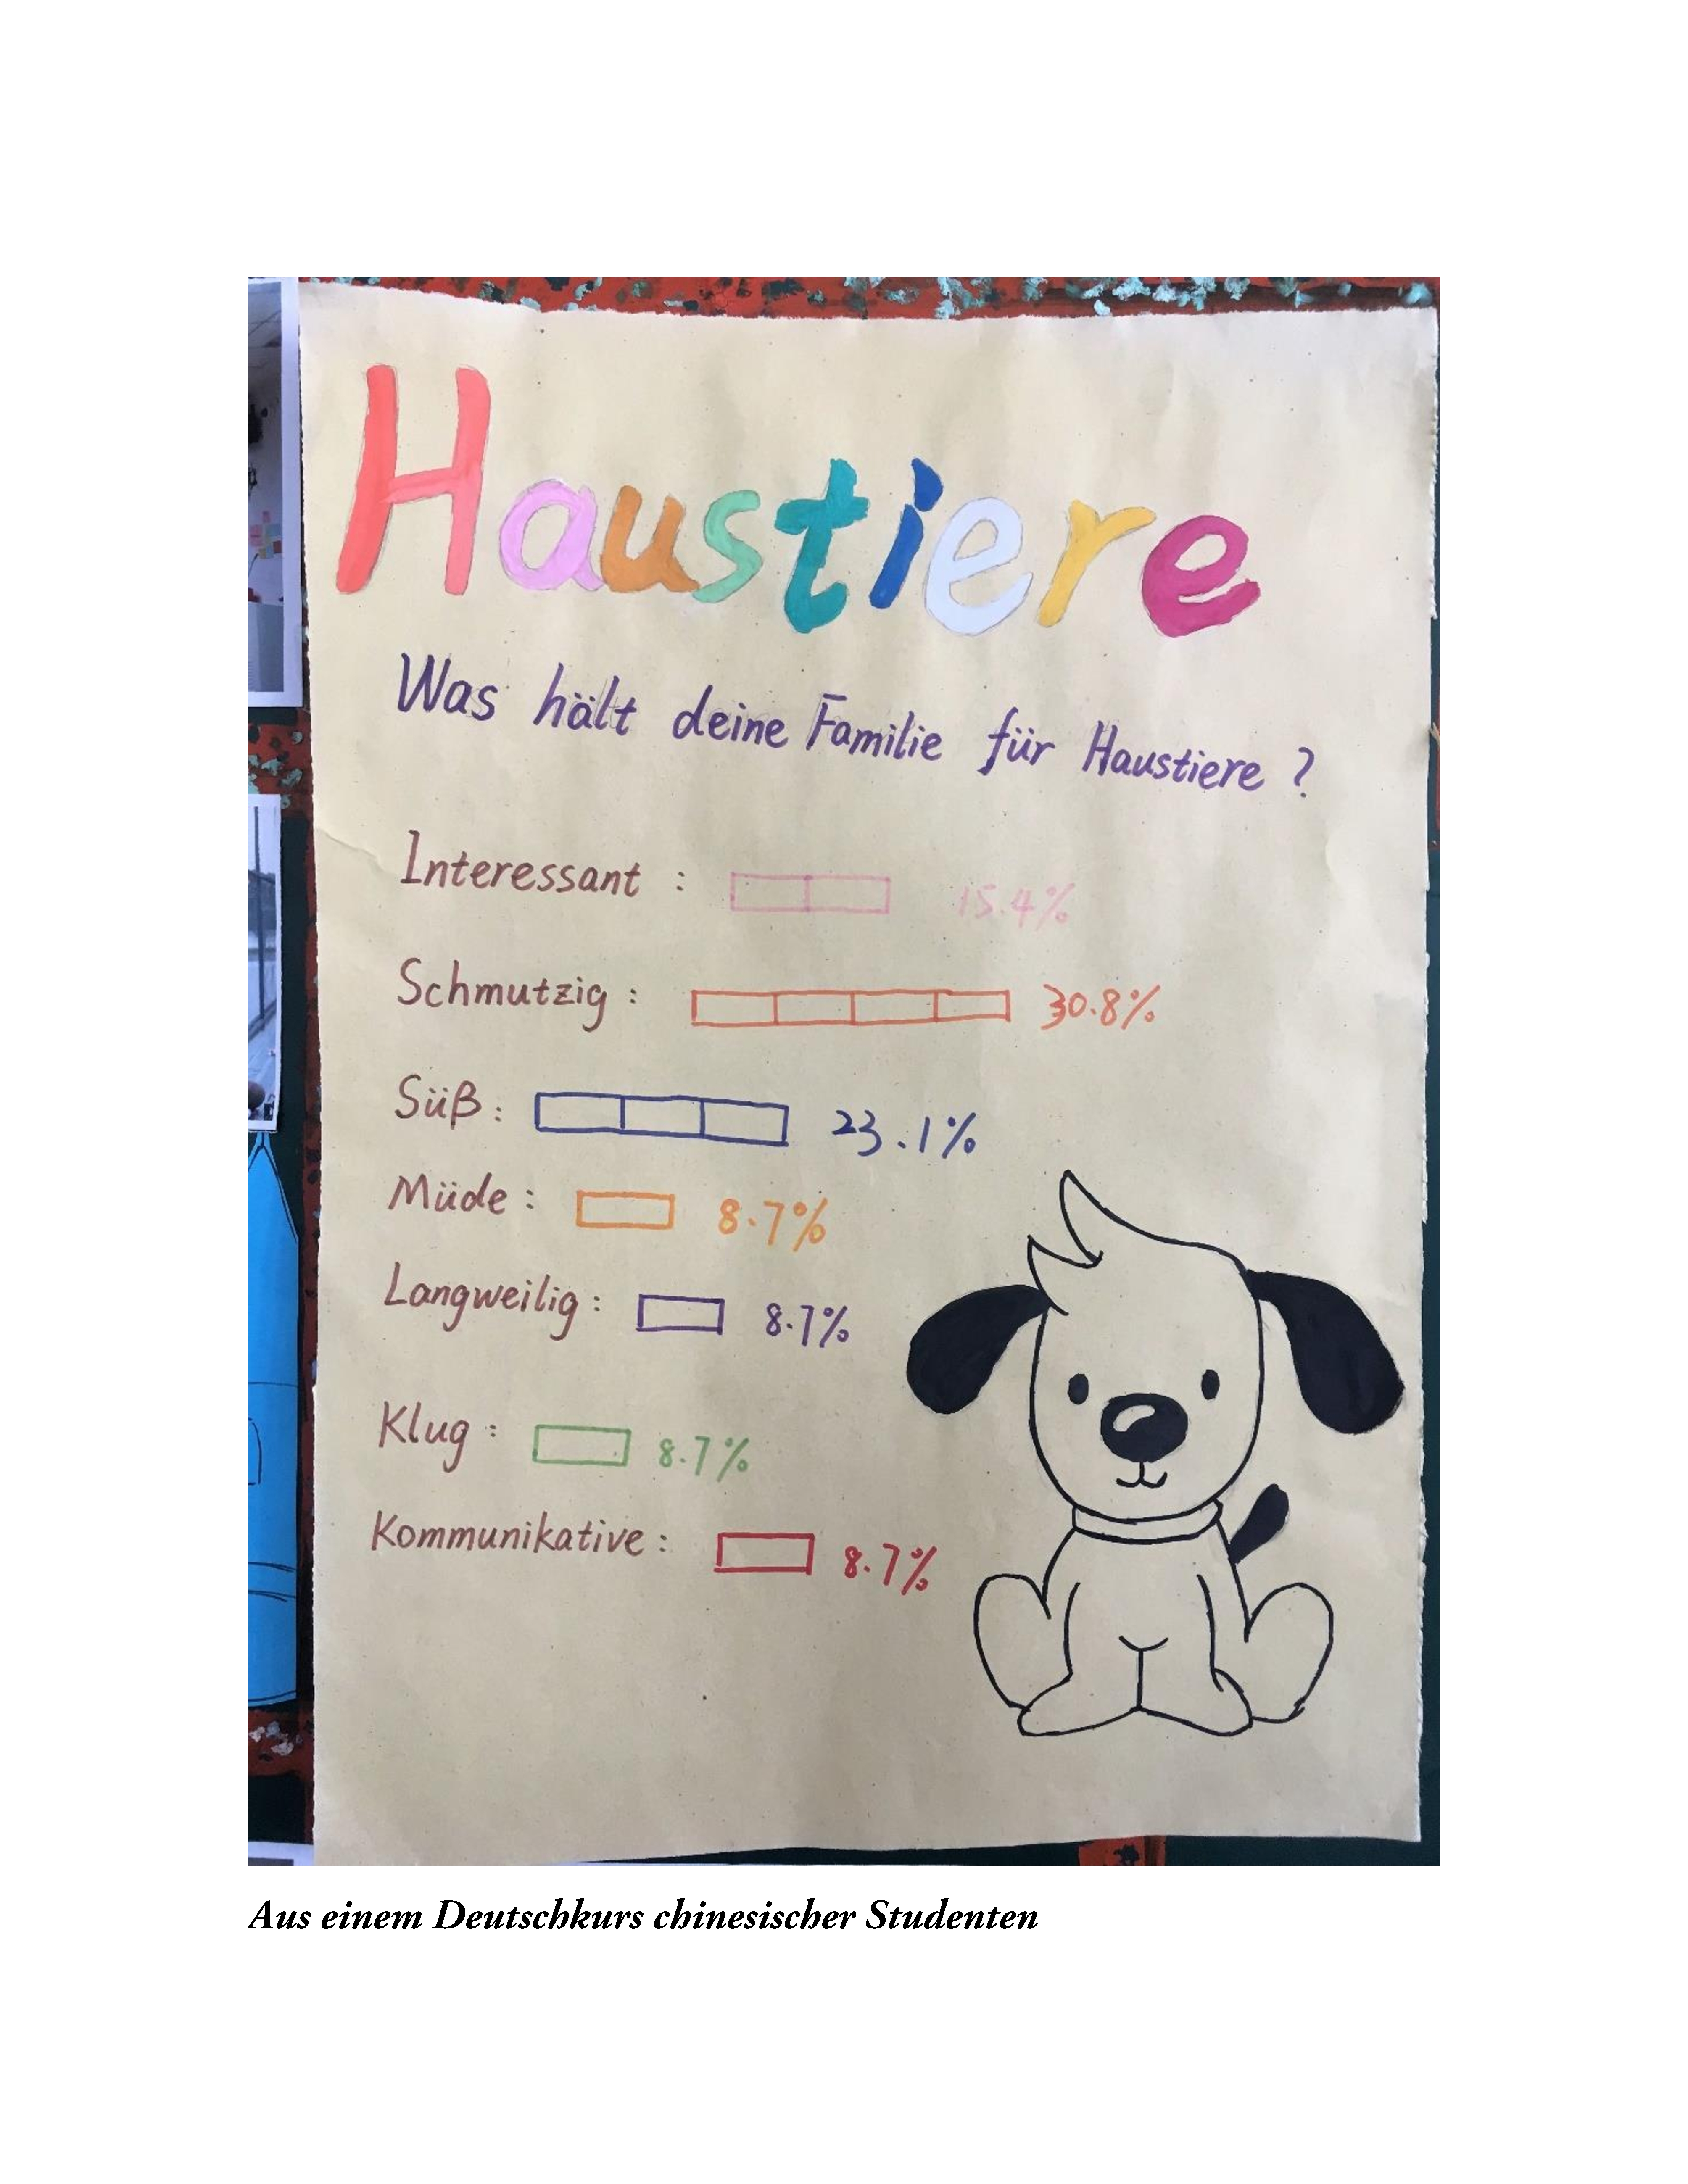 Haustiere
Was hält deine Familie für Haustiere ?
Interessant : 15.4%
Schmutzig : 30.8%
Süß : 23.1%
Müde : 8.7%
Langweilig : 8.7%
Klug : 8.7%
Kommunikative : 8.7%
Aus einem Deutschkurs chinesischer Studenten